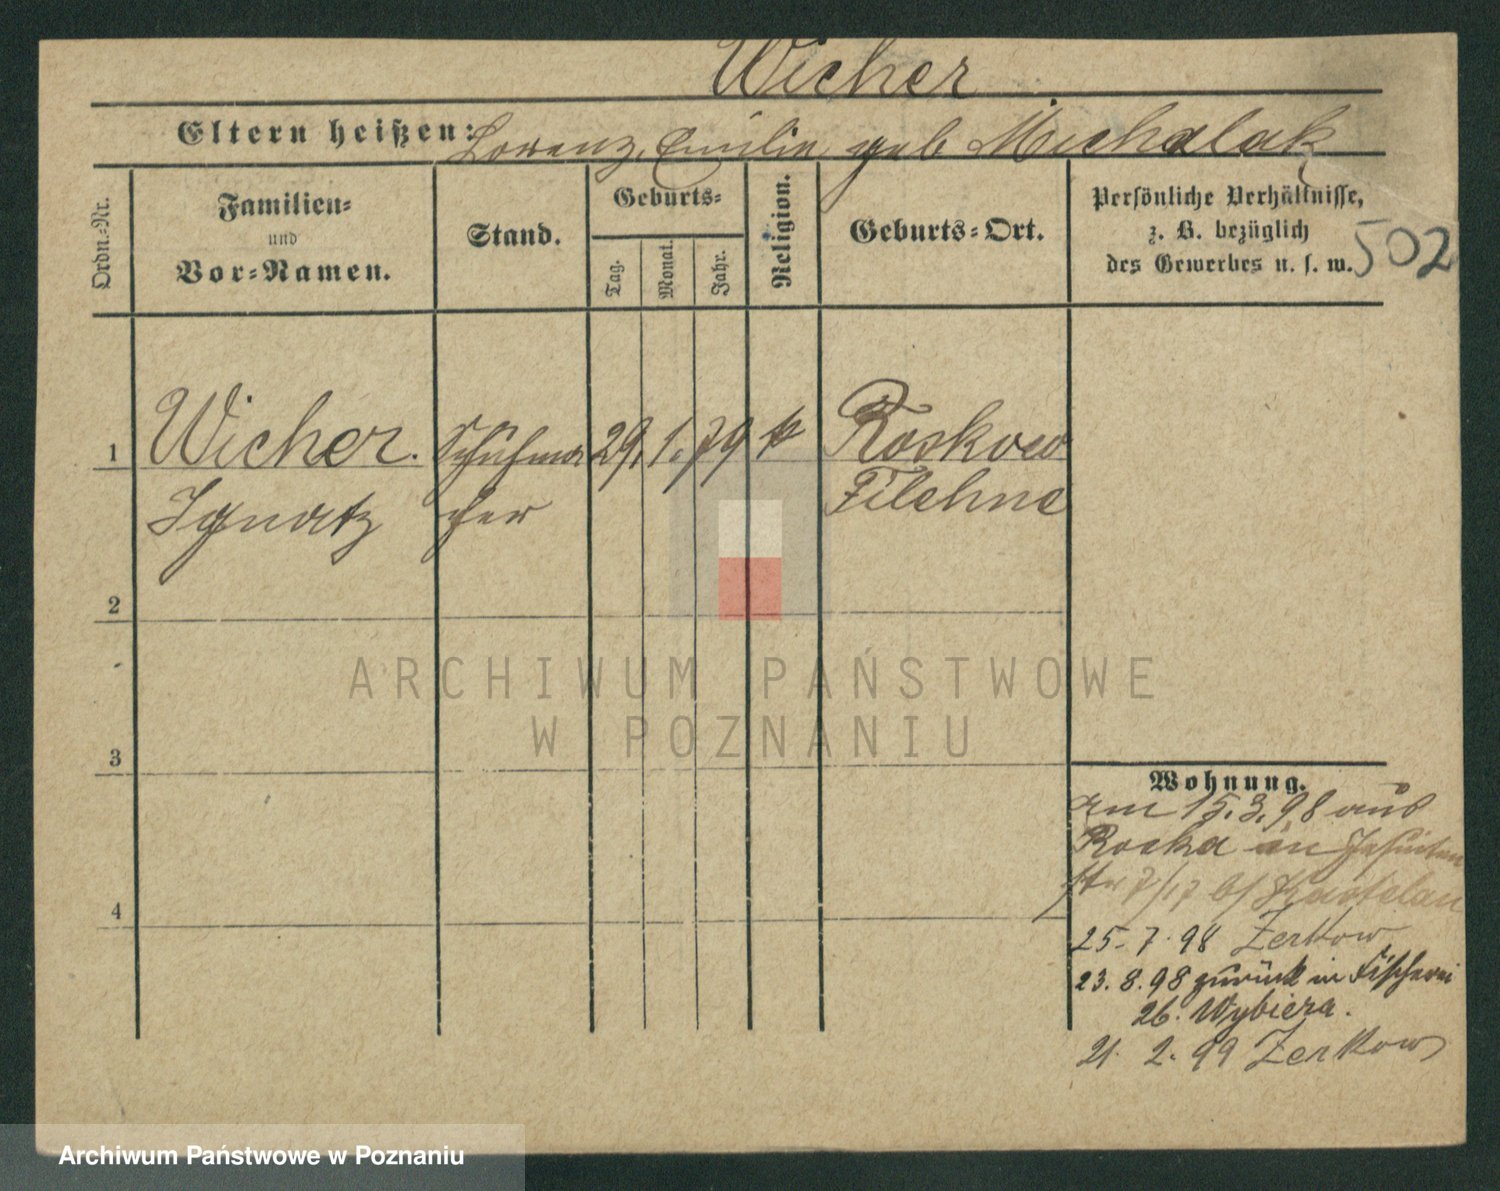 Wicher
Eltern heißen: Lorenz, Emilie geb Michalak
Ordn.-Nr.
Familien-
und
Vor-Namen.
Stand.
Geburts-
Tag.
Monat.
Jahr.
Religion.
Geburts-Ort.
Persönliche Verhältnisse,
z. B. bezüglich
des Gewerbes u. s. w.
502
1 Wicher. Schuhma 29. 1. 79 k Roskow
Ignatz cher Filehne
2
3
4
ARCHIWUM PAŃSTWOWE
W POZNANIU
Wohnung.
am 15.3.98 aus
in Jesuiten
str 7/17 b/ Kastelan
25. 7. 98 Zerkow
23. 8. 98 zurück in Fischerei
26. Wybiera.
21. 2. 99 Zerkow
Archiwum Państwowe w Poznaniu